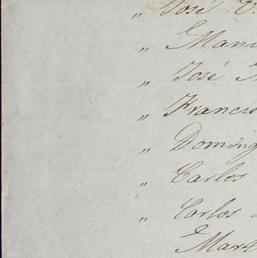 " José
" Manu
" José
" Francis
" Doming
" Carlos
" Carlos
Mart